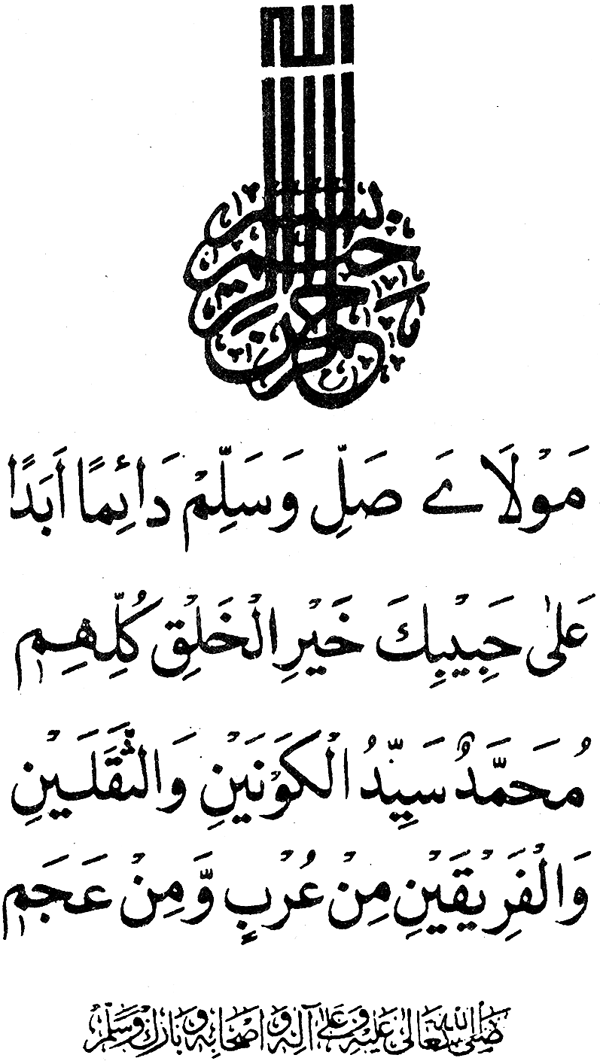 بسم الله الرحمن الرحيم
مَوْلَاےَ صَلِّ وَسَلِّمْ دَائِمًا اَبَدًا
عَلىٰ حَبِيْبِكَ خَيْرِ الْخَلْقِ كُلِّهِمٖ
مُحَمَّدٌ سَيِّدُ الْكَوْنَيْنِ وَالثَّقَلَيْنِ
وَالْفَرِيْقَيْنِ مِنْ عُرْبٍ وَّمِنْ عَجَمٖ
صَلَّى اللهُ تَعَالىٰ عَلَيْهِ وَعَلىٰ آلِهٖ وَاَصْحَابِهٖ وَبَارَكَ وَسَلَّمْ